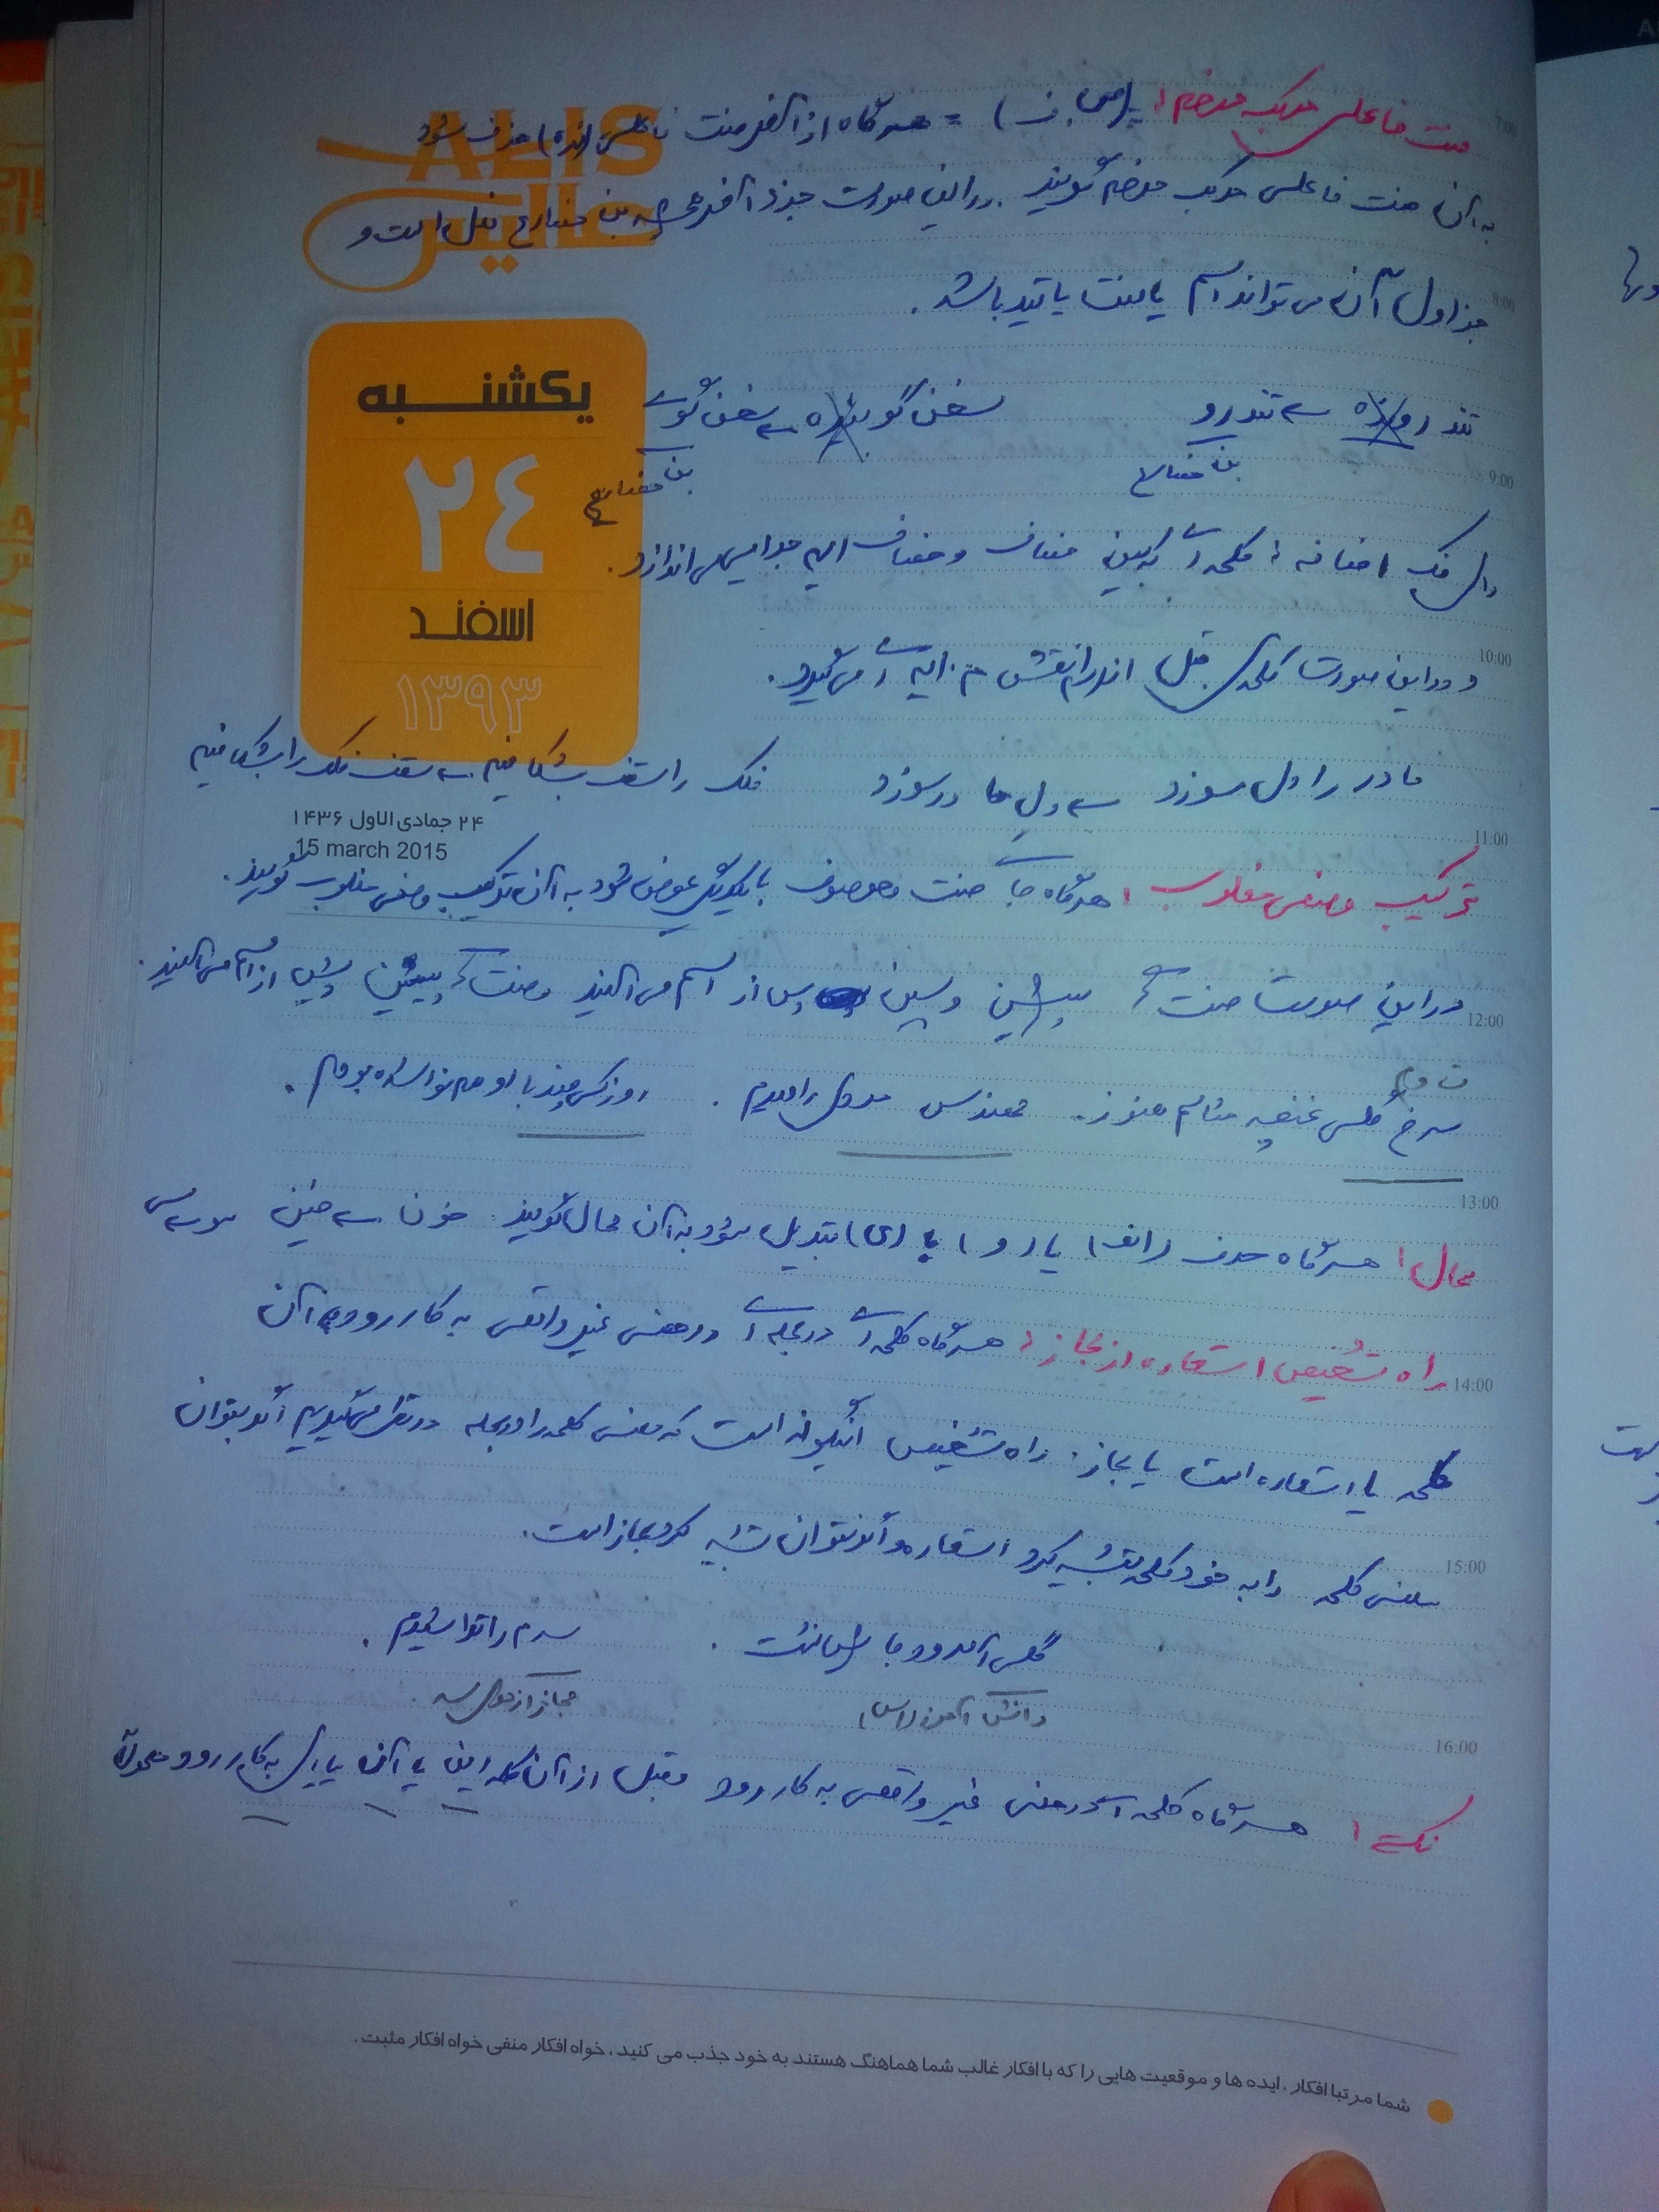 صفت فاعلی مرکب مرخم: (ص.ف) = هرگاه از آخر صفت فاعلی (نده) حذف شود
به آن صفت فاعلی مرکب مرخم گویند. در این صورت جزء آخر همیشه بن مضارع فعل است و
جز اول آن می تواند اسم یا صفت یا قید باشد.
تند رونده تندرو سخن گوینده سخن گوی
بن مضارع بن مضارع
رای فک اضافه: کلمه ای که بین مضاف و مضاف الیه جدایی می اندازد.
و در این صورت کلمه ی قبل از را نقش م. الیه ای می گیرد.
مادر را دل سوزد دل مادر سوزد فلک را سقف بشکافیم سقف فلک را بشکافیم
ترکیب وصفی مقلوب: هرگاه جای صفت و موصوف با یکدیگر عوض شود به آن ترکیب وصفی مقلوب گویند.
در این صورت صفت های پیشین پس از اسم می آیند و صفت های پسین پیش از اسم می آیند.
سرخ گلی غنچه مثالم هنوز. مهندس را دیدم. روزکی چند با او هم نوا شده بودم.
ممال: هرگاه حرف (الف) یا (و) با (ی) تبدیل شود به آن ممال گویند.
راه تشخیص استعاره از مجاز: هرگاه کلمه ای در جمله ای در معنی غیر واقعی به کار رود آن
کلمه یا استعاره است یا مجاز. راه تشخیص اینگونه است که معنی کلمه را در جمله در نظر می گیریم اگر بتوان
معنی کلمه را به خود کلمه تشبیه کرد استعاره و اگر نتوان تشبیه کرد مجاز است.
گلی آمد و و جایش نشست. سرم را تراشیدم.
دانش آموز (اس) مجاز از موی سر
نکته: هرگاه کلمه ای در معنی غیر واقعی به کار رود و قبل از آن کلمه این یا آن یا ای به کار رود معمولاً
ALIS
عالیس
یکشنبه
۲۴
اسفند
۱۳۹۳
۲۴ جمادی الاول ۱۴۳۶
15 march 2015
7:00
8:00
9:00
10:00
11:00
12:00
13:00
14:00
15:00
16:00
شما مرتبا افکار ، ایده ها و موقعیت هایی را که با افکار غالب شما هماهنگ هستند به خود جذب می کنید ، خواه افکار منفی خواه افکار مثبت .